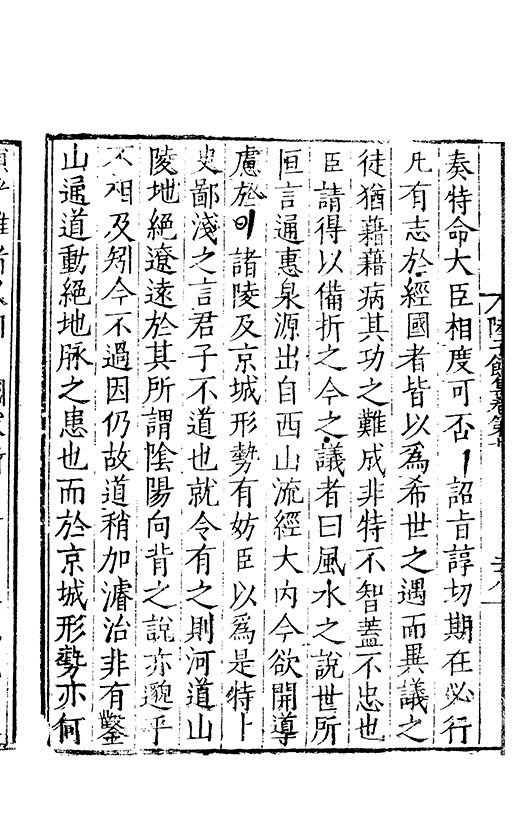 奏特命大臣相度可否詔旨諄切期在必行
凡有志於經國者皆以為希世之遇而異議之
徒猶藉藉病其功之難成非特不智蓋不忠也
臣請得以備折之今之議者曰風水之說世所
恒言通惠泉源出自西山流經大内今欲開導
慮於諸陵及京城形勢有妨臣以為是特卜
史鄙淺之言君子不道也就令有之則河道山
陵地絕遼遠於其所謂隂陽向背之說亦邈乎
不相及矧今不過因仍故道稍加濬治非有鑿
山通道動絕地脉之患也而於京城形勢亦何